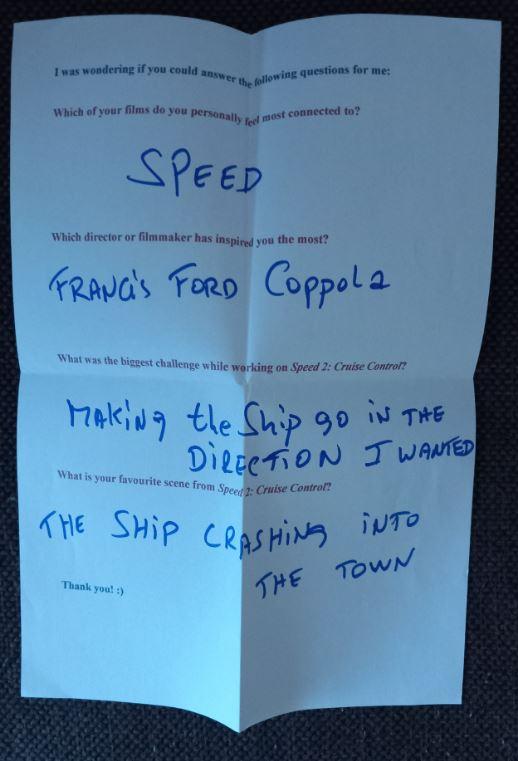 I was wondering if you could answer the following questions for me:
Which of your films do you personally feel most connected to?
SPEED
Which director or filmmaker has inspired you the most?
FRANCIS FORD Coppola
What was the biggest challenge while working on Speed 2: Cruise Control?
MAKING the Ship go iN THE
DIRECTION I WANTED
What is your favourite scene from Speed 2: Cruise Control?
THE SHIP CRASHING iNTO
THE TOWN
Thank you! :)